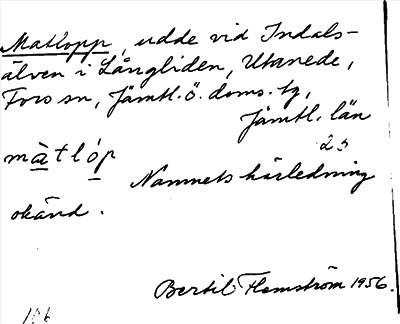 Matlopp, udde vid Indals-
älven i Långliden, Utanede,
Fors sn, Jämtl. ö. doms. tg,
Jämtl. län
màtlóp
23
Namnets härledning
okänd.
Bertil Flemström 1956.